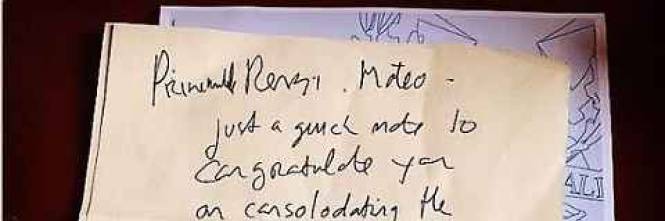 Renzi. Mateo -
just a quick note to
congratulate you
on consolodating the
ALI